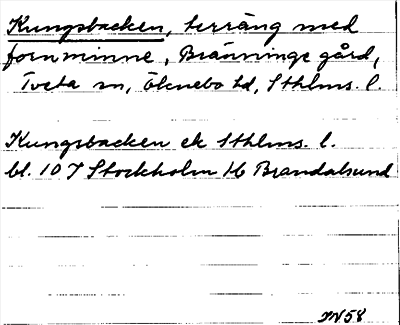 Kungsbacken, terräng med
fornminne, Bränninge gård,
Tveta sn, Öknebo hd, Sthlms. l.
Kungsbacken ek Sthlms. l.
bl. 10 I Stockholm H6 Brandalsund
58